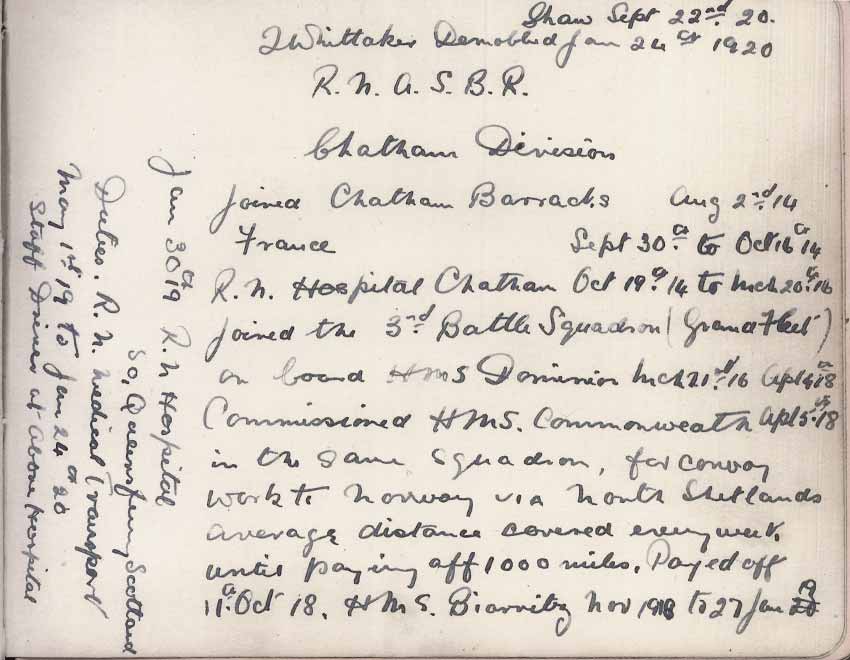 Shaw Sept 22nd 20.
J Whittaker Demobbed Jan 24th 1920
R. N. A. S. B. R.
Chatham Division
Joined Chatham Barracks Aug 2nd 14
France Sept 30th to Oct 16th 14
R. N. Hospital Chatham Oct 19th 14 to Mch 20th 16
Joined the 3rd Battle Squadron (Grand Fleet)
on board HMS Dominion Mch 21st 16 Apl 4th 18
Commissioned HMS. Commonwealth Apl 5th 18
in the same squadron, for convoy
work to Norway via North Shetlands
average distance covered every week
until paying off 1000 miles. Payed off
11th Oct 18. HMS. Biarritz Nov 1918 to 27 Jan 19
Jan 30th 19 R. N Hospital
So. Queensferry Scotland
Duties. R. N. Medical Transport
May 1st 19 to Jan 24th 20
Staff Driver at above Hospital